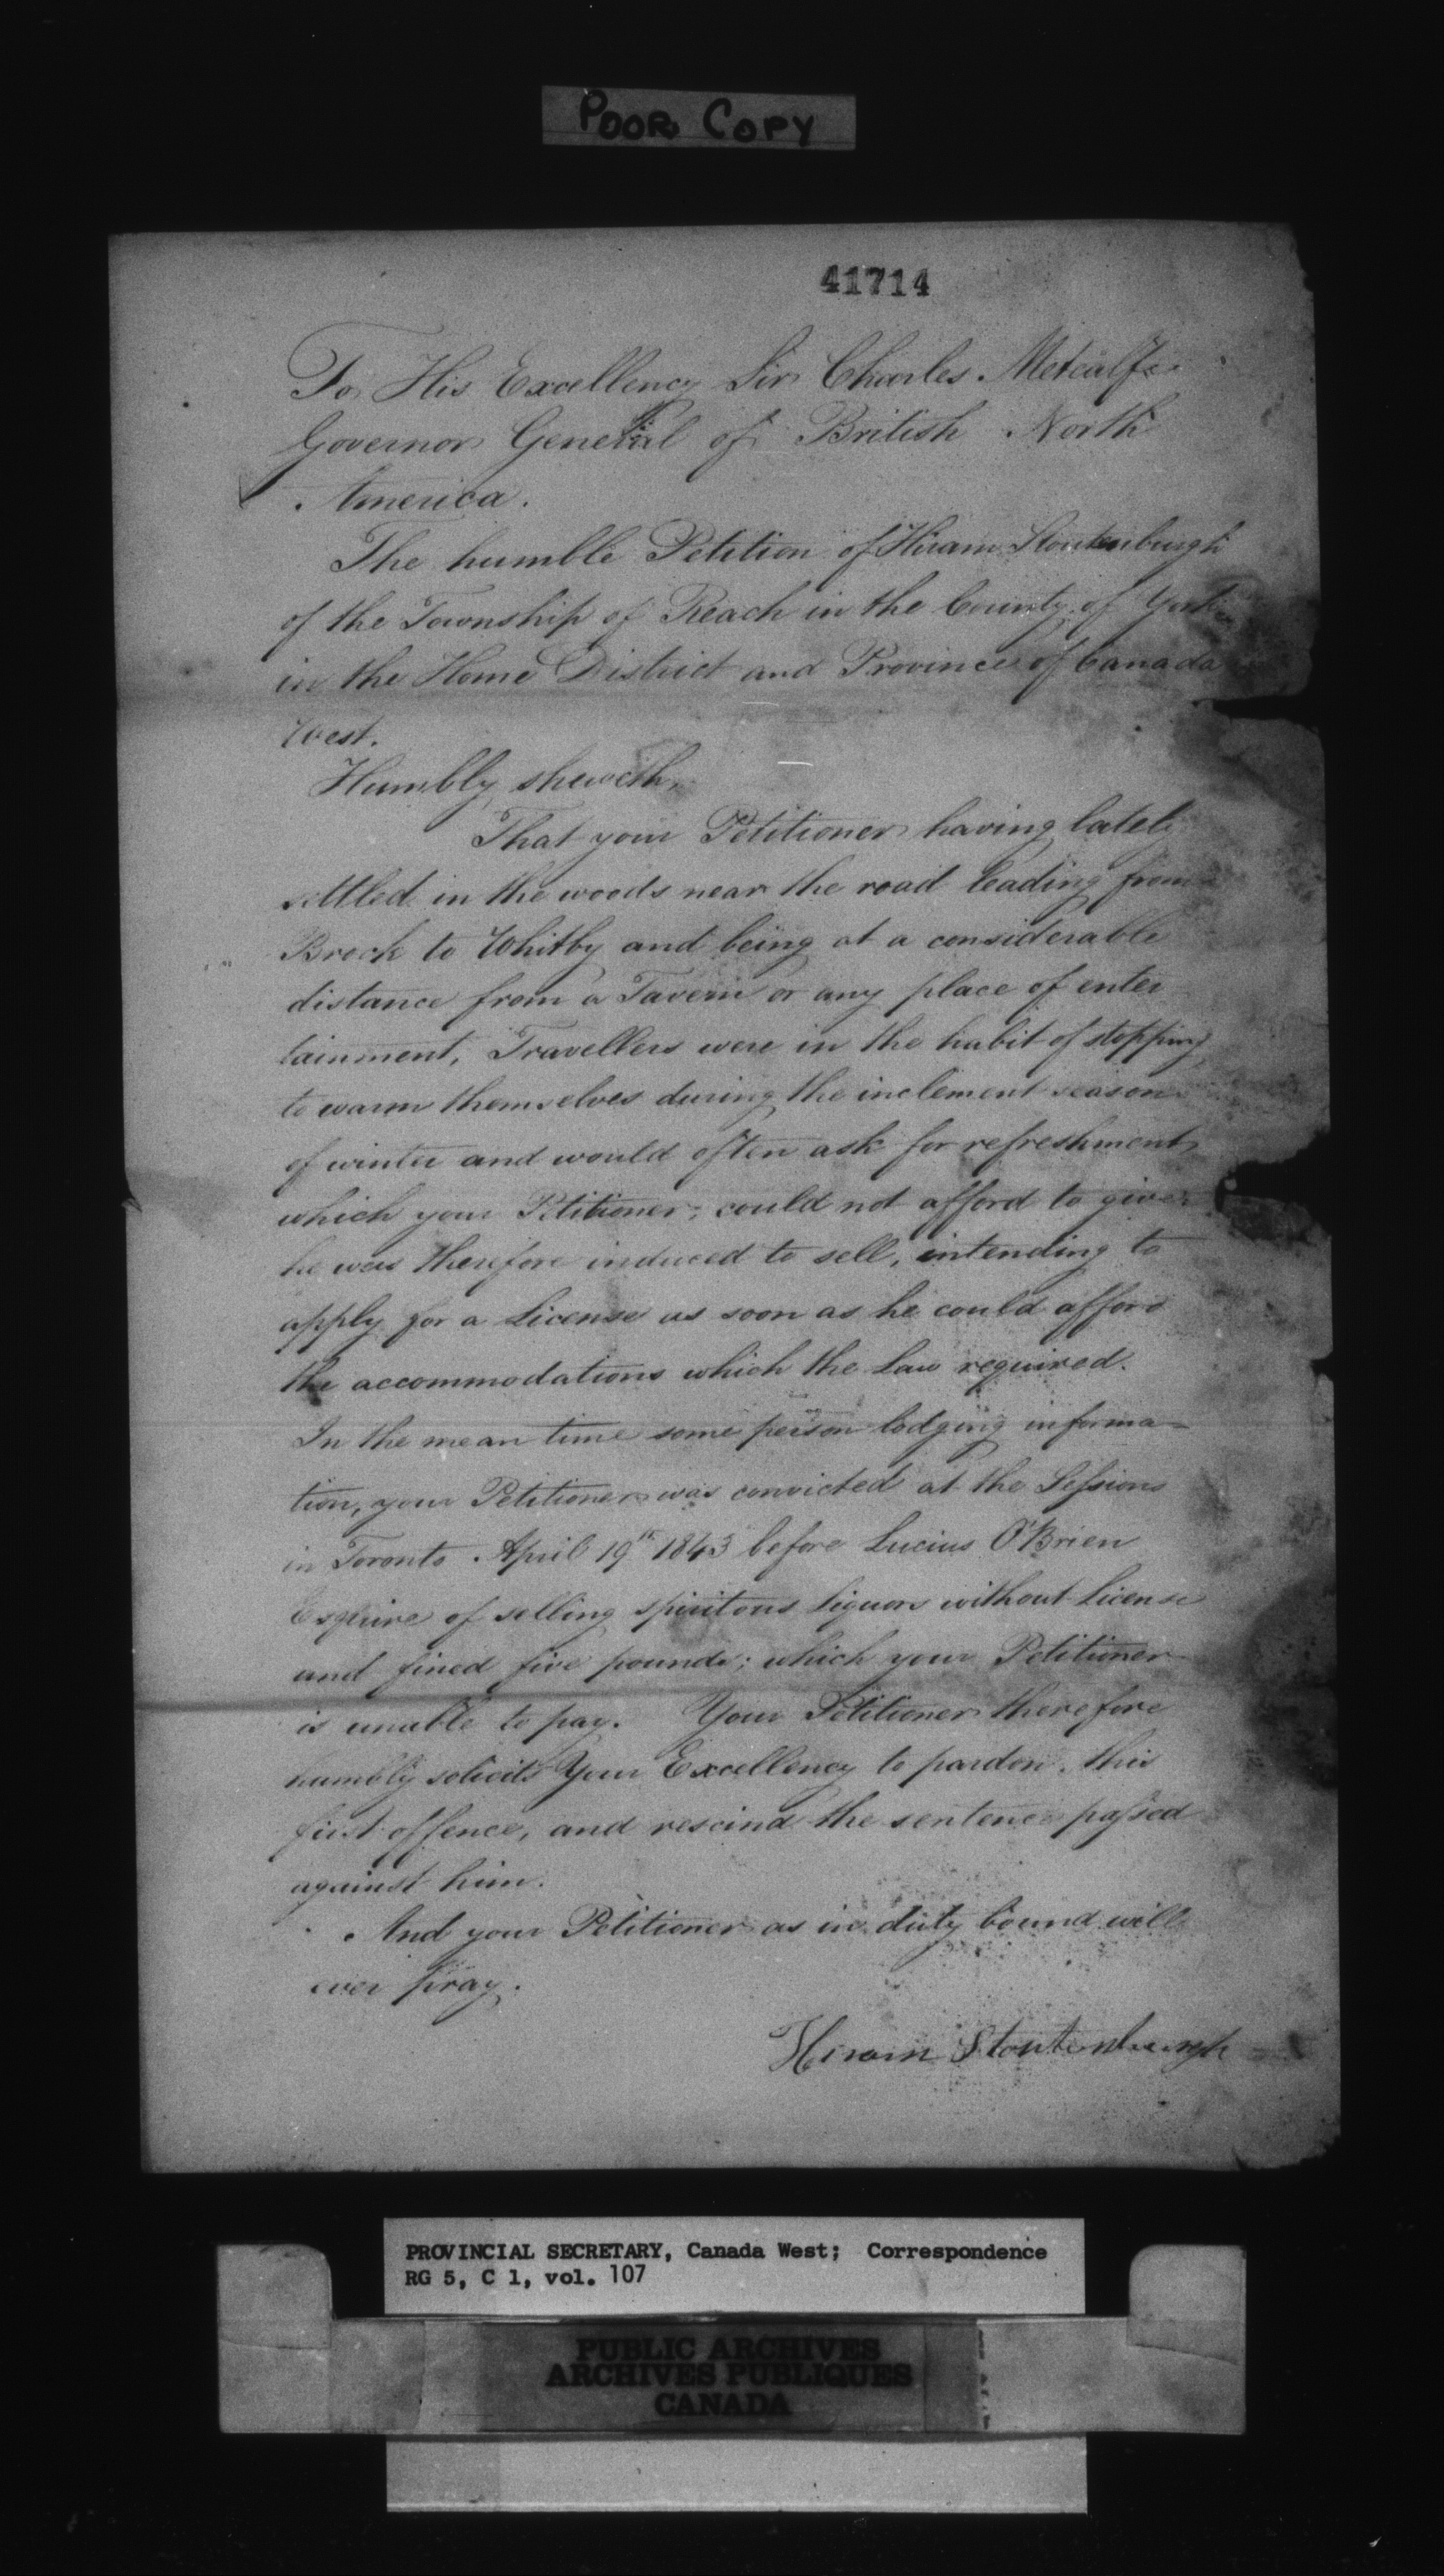 POOR COPY
41714
To His Excellency Sir Charles Metcalfe
Governor General of British North
America.
The humble Petition of Hiram Stoutenburgh
of the Township of Reach in the County of York
in the Home District and Province of Canada
West.
Humbly sheweth,
That your Petitioner having lately
settled in the woods near the road leading from
Brock to Whitby and being at a considerable
distance from a Tavern or any place of enter
tainment, Travellers were in the habit of stopping
to warm themselves during the inclement season
of winter and would often ask for refreshment
which your Petitioner, could not afford to give.
he was therefore induced to sell, intending to
apply for a License as soon as he could afford
the accommodations which the Law required.
In the mean time some person lodging informa=
tion, your Petitioner was convicted at the Sessions
in Toronto April 19th 1843 before Lucius O'Brien
Esquire of selling spiritous liquors without License
and fined five pounds; which your Petitioner
is unable to pay. Your Petitioner therefore
humbly solicits Your Excellency to pardon this
first offence, and rescind the sentence passed
against him.
And your Petitioner as in duty bound will
ever pray.
Hiram Stoutenburgh
PROVINCIAL SECRETARY, Canada West; Correspondence
RG 5, C 1, vol. 107
PUBLIC ARCHIVES
ARCHIVES PUBLIQUES
CANADA